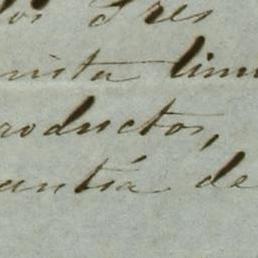 los Tres
uista lim
roductos,
antía de